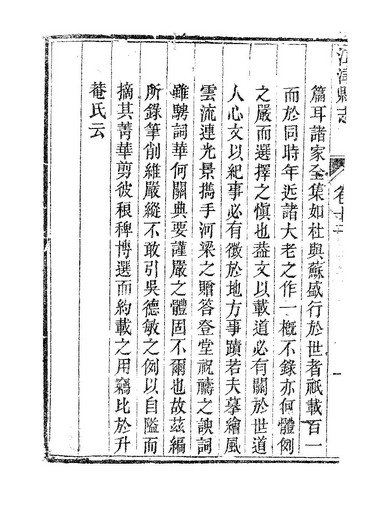 江津縣志
卷十
篇耳諸家全集如杜與蘇盛行於世者祇載百一
而於同時年近諸大老之作一槪不錄亦何體例
之嚴而選擇之愼也葢文以載道必有關於世道
人心文以紀事必有徵於地方事蹟若夫摹繪風
雲流連光景擕手河梁之贈答登堂祝禱之諛詞
雖騁詞華何關典要謹嚴之體固不爾也故茲編
所錄筆削維嚴縱不敢引吳德敏之例以自隘而
摘其菁華剪彼稂稗博選而約載之用竊比於升
菴氏云